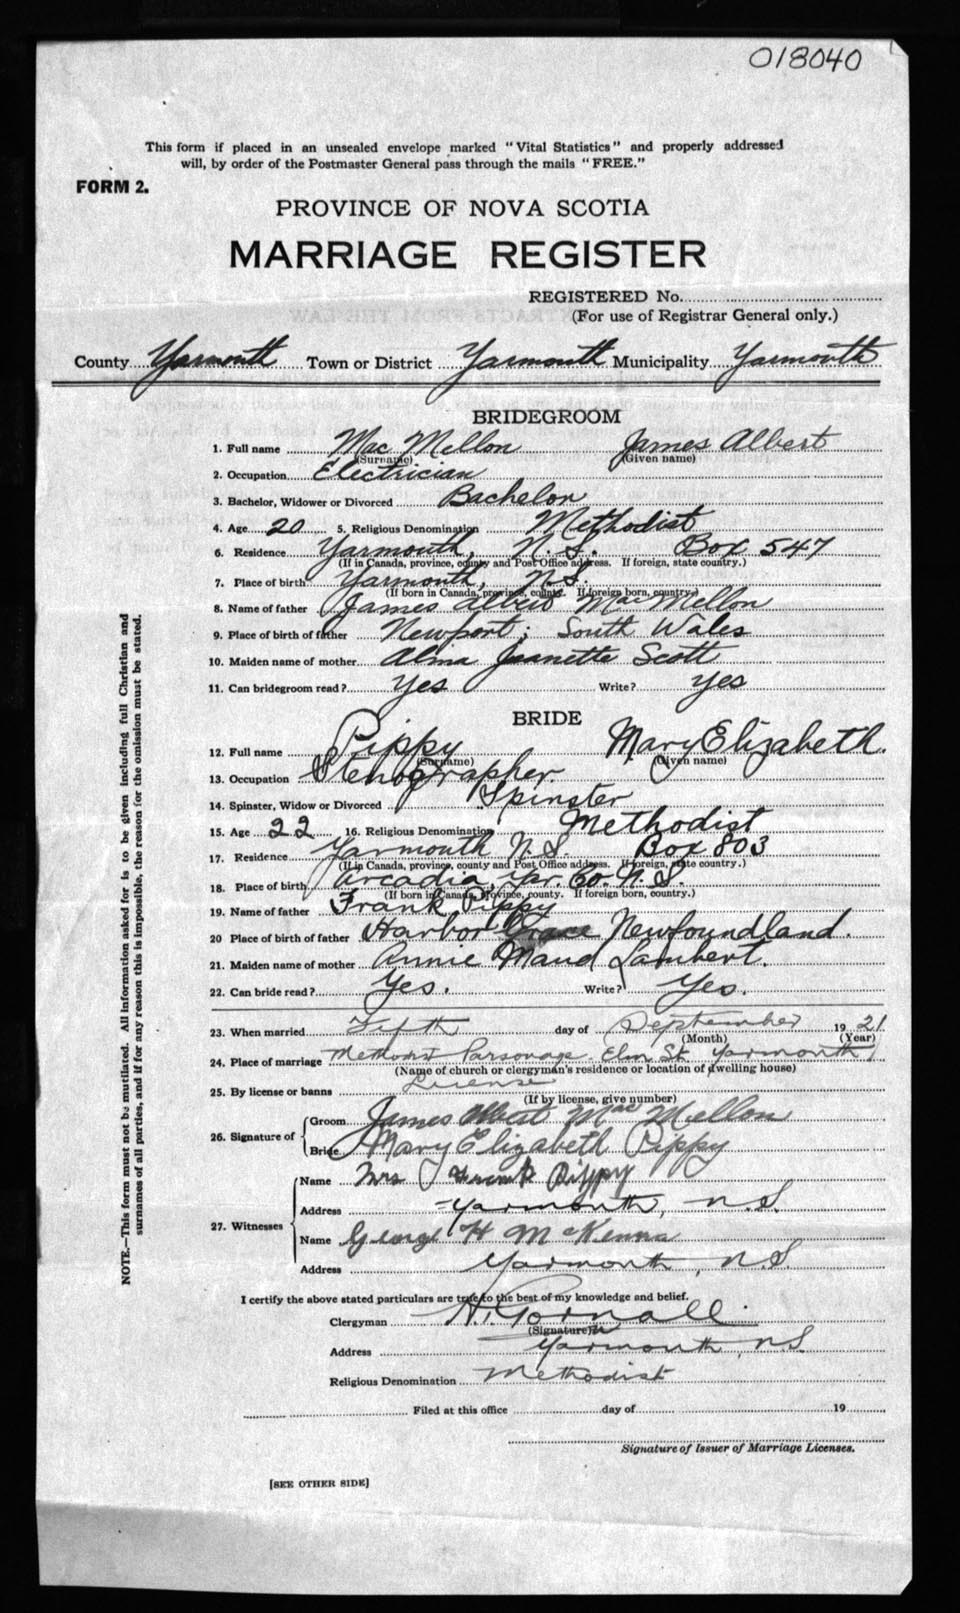 018040
This form if placed in an unsealed envelope marked "Vital Statistics" and properly addressed
will, by order of the Postmaster General pass through the mails "FREE."
FORM 2.
PROVINCE OF NOVA SCOTIA
MARRIAGE REGISTER
REGISTERED No.
(For use of Registrar General only.)
County Yarmouth Town or District Yarmouth Municipality Yarmouth
BRIDEGROOM
1. Full name Mac Mellon James Albert
(Surname) (Given name)
2. Occupation Electrician
3. Bachelor, Widower or Divorced Bachelor
4. Age 20 5. Religious Denomination Methodist
6. Residence Yarmouth, N.S. Box 547
(If in Canada, province, county and Post Office address. If foreign, state country.)
7. Place of birth Yarmouth, N.S.
(If born in Canada, province, county. If foreign born, country.)
8. Name of father James Albert Mac Mellon
9. Place of birth of father Newport; South Wales
10. Maiden name of mother Alma Jeanette Scott
11. Can bridegroom read? Yes Write? Yes
BRIDE
12. Full name Pippy Mary Elizabeth.
(Surname) (Given name)
13. Occupation Stenographer.
14. Spinster, Widow or Divorced Spinster
15. Age 22 16. Religious Denomination Methodist
17. Residence Yarmouth N.S. Box 803
(If in Canada, province, county and Post Office address. If foreign, state country.)
18. Place of birth Arcadia, Yar. Co. N.S.
(If born in Canada, province, county. If foreign born, country.)
19. Name of father Frank Pippy
20 Place of birth of father Harbor Grace Newfoundland.
21. Maiden name of mother Annie Maud Lambert.
22. Can bride read? Yes. Write? Yes.
23. When married Fifth day of September 1921
(Month) (Year)
24. Place of marriage Methodist Parsonage Elm St. Yarmouth
(Name of church or clergyman's residence or location of dwelling house)
25. By license or banns License
(If by license, give number)
26. Signature of Groom James Albert Mac Mellon
Bride Mary Elizabeth Pippy
27. Witnesses Name Mrs Frank Pippy
Address Yarmouth, N.S.
Name George H McKenna
Address Yarmouth, N.S.
I certify the above stated particulars are true to the best of my knowledge and belief.
Clergyman H. Gornall.
(Signature)
Address Yarmouth, N.S.
Religious Denomination Methodist
Filed at this office day of 19
Signature of Issuer of Marriage Licenses.
[SEE OTHER SIDE]
NOTE.—This form must not be mutilated. All information asked for is to be given including full Christian and
surnames of all parties, and if for any reason this is impossible, the reason for the omission must be stated.